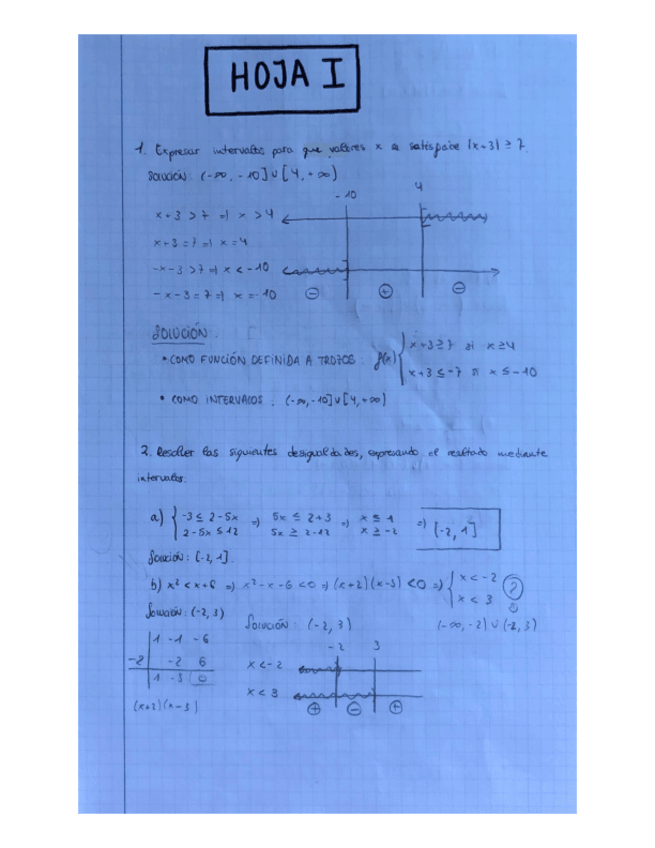 HOJA I
1. Expresar intervalos para que valores x se satisface |x+3| ≥ 7.
Solución: (-∞, -10] ∪ [4, +∞)
-10 4
x+3 > 7 ⇒ x > 4
x+3 = 7 ⇒ x = 4
-x-3 > 7 ⇒ x < -10
-x-3 = 7 ⇒ x = -10
- + -
SOLUCIÓN:
• COMO FUNCIÓN DEFINIDA A TROZOS: f(x) { x+3 ≥ 7 si x ≥ 4
x+3 ≤ -7 si x ≤ -10
• COMO INTERVALOS: (-∞, -10] ∪ [4, +∞)
2. Resolver las siguientes desigualdades, expresando el resultado mediante
intervalos.
a) { -3 ≤ 2-5x ⇒ 5x ≤ 2+3 ⇒ x ≤ 1 ⇒ [-2, 1]
2-5x ≤ 12 5x ≥ 2-12 x ≥ -2
Solución: [-2, 1].
b) x² < x+6 ⇒ x²-x-6 < 0 ⇒ (x+2)(x-3) < 0 ⇒ { x < -2 ?
x < 3
Solución: (-2, 3)
Solución: (-2, 3) (-∞, -2) ∪ (-2, 3)
1 -1 -6
-2 -2 6
1 -3 0
(x+2)(x-3)
-2 3
x < -2
x < 3
+ - +